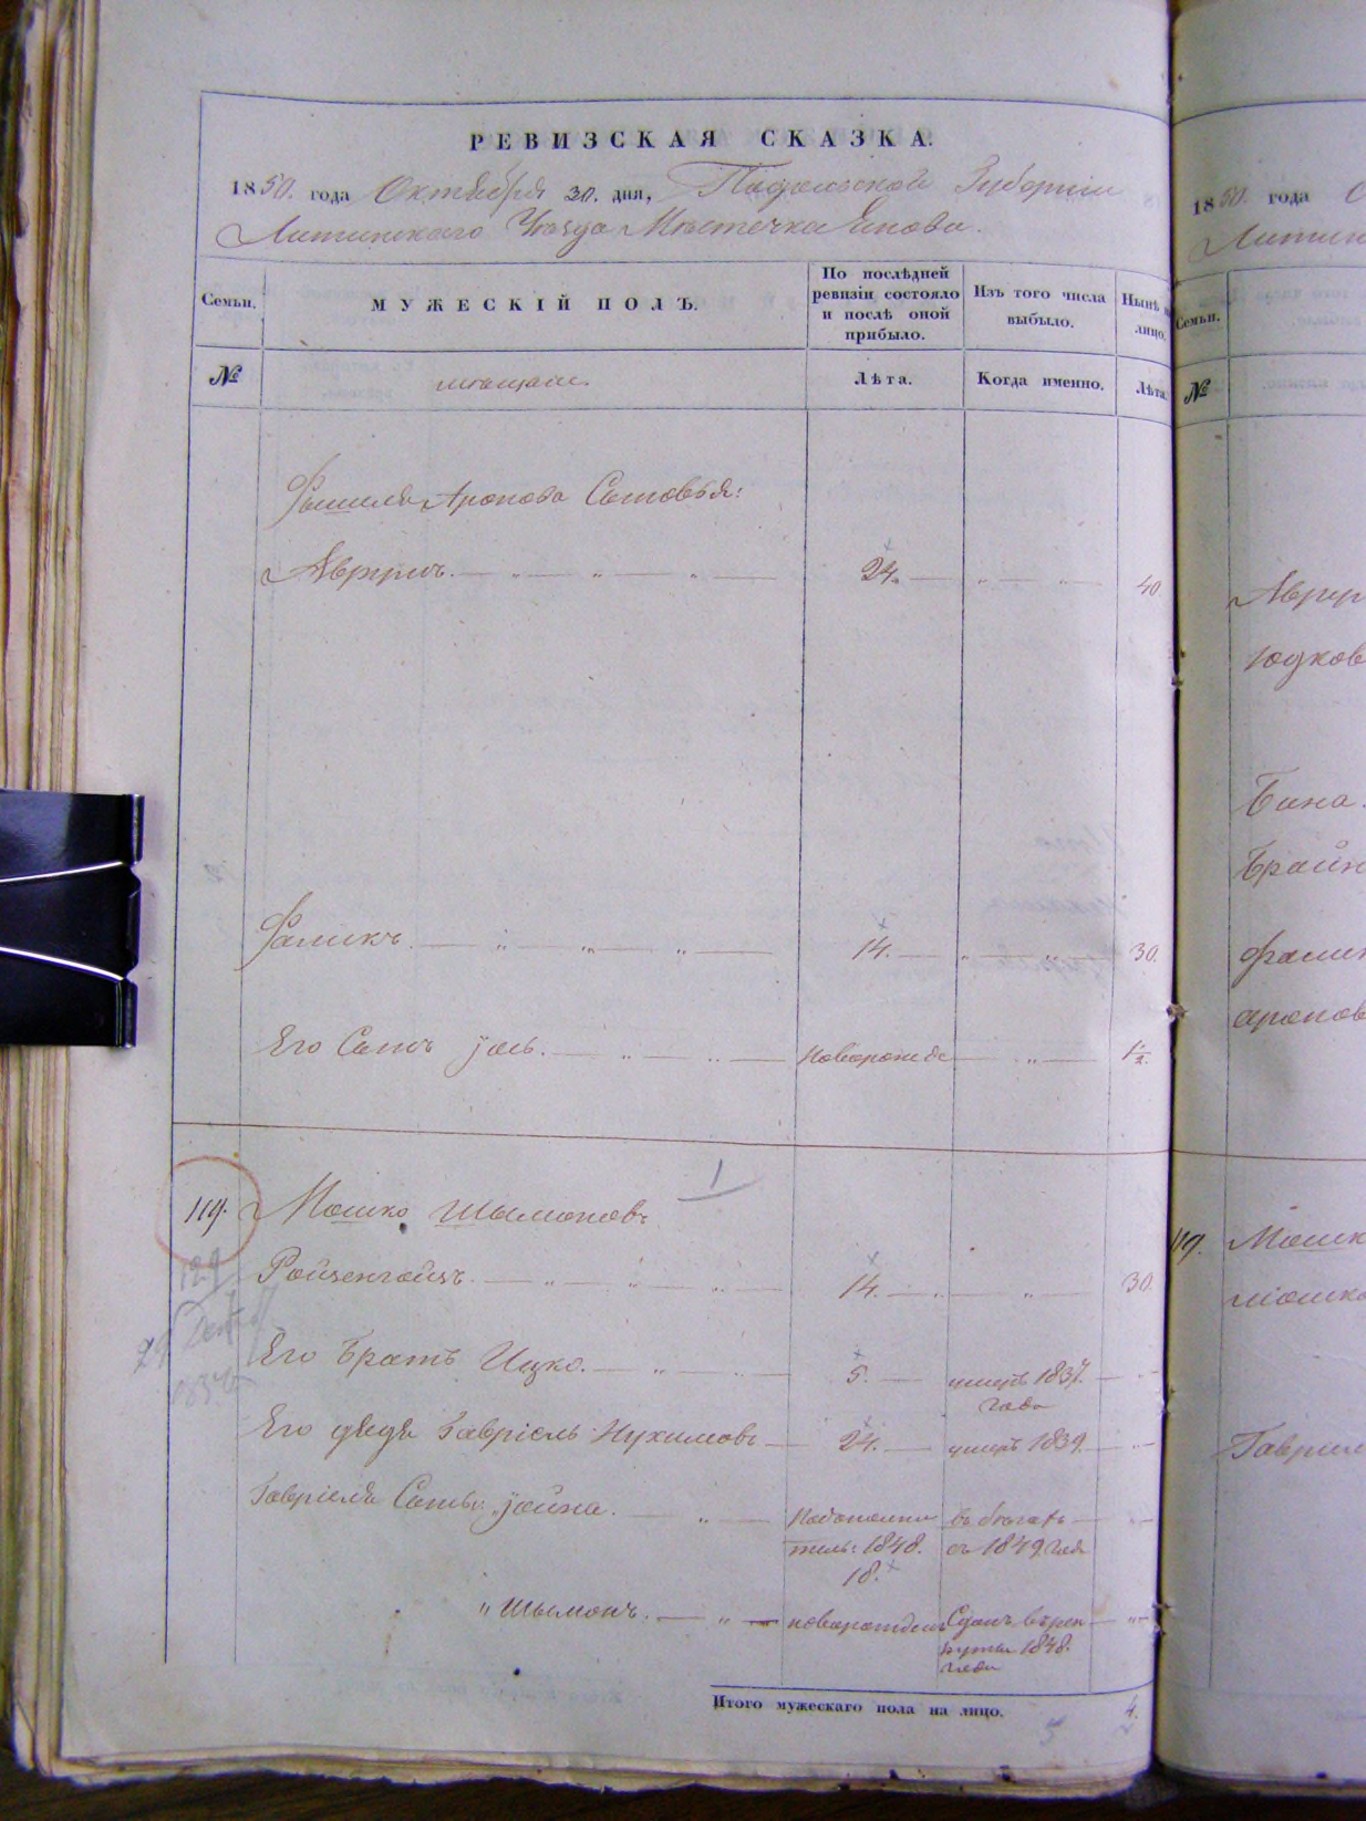 РЕВИЗСКАЯ СКАЗКА.
1850. года Октября 30. дня, Подольской Губернии
Литинскаго Уѣзда Мѣстечка Янова.
Семьи.
МУЖЕСКІЙ ПОЛЪ.
По послѣдней ревизіи состояло и послѣ оной прибыло.
Изъ того числа выбыло.
Нынѣ на лицо.
№
мѣщане.
Лѣта.
Когда именно.
Лѣта.
Фишеля Аронова Сыновья:
Аврумъ. 24. 40.
Фаликъ. 14. 30.
Его Сынъ Іось. новорожде 1½.
1
119. Мошко Шымоновъ
Ройзенгойзъ. 14. 30.
129
Его Братъ Ицко. 5. умеръ 1837.
года
Его дядя Гавріель Нухимовъ 24. умеръ 1839.
Гавріеля Сынъ: Іойна. по дополни въ бѣгахъ
тель: 1848. съ 1849 года
18.
" Шымонъ. новорожден Сданъ въ рек
руты 1848.
года
Итого мужескаго пола на лицо. 4.
1850 года О
Литин
Семьи.
№
Аврум
Юдков
Бина.
Брайн
Фалик
аронов
119. Мошк
мошко
Гаврил